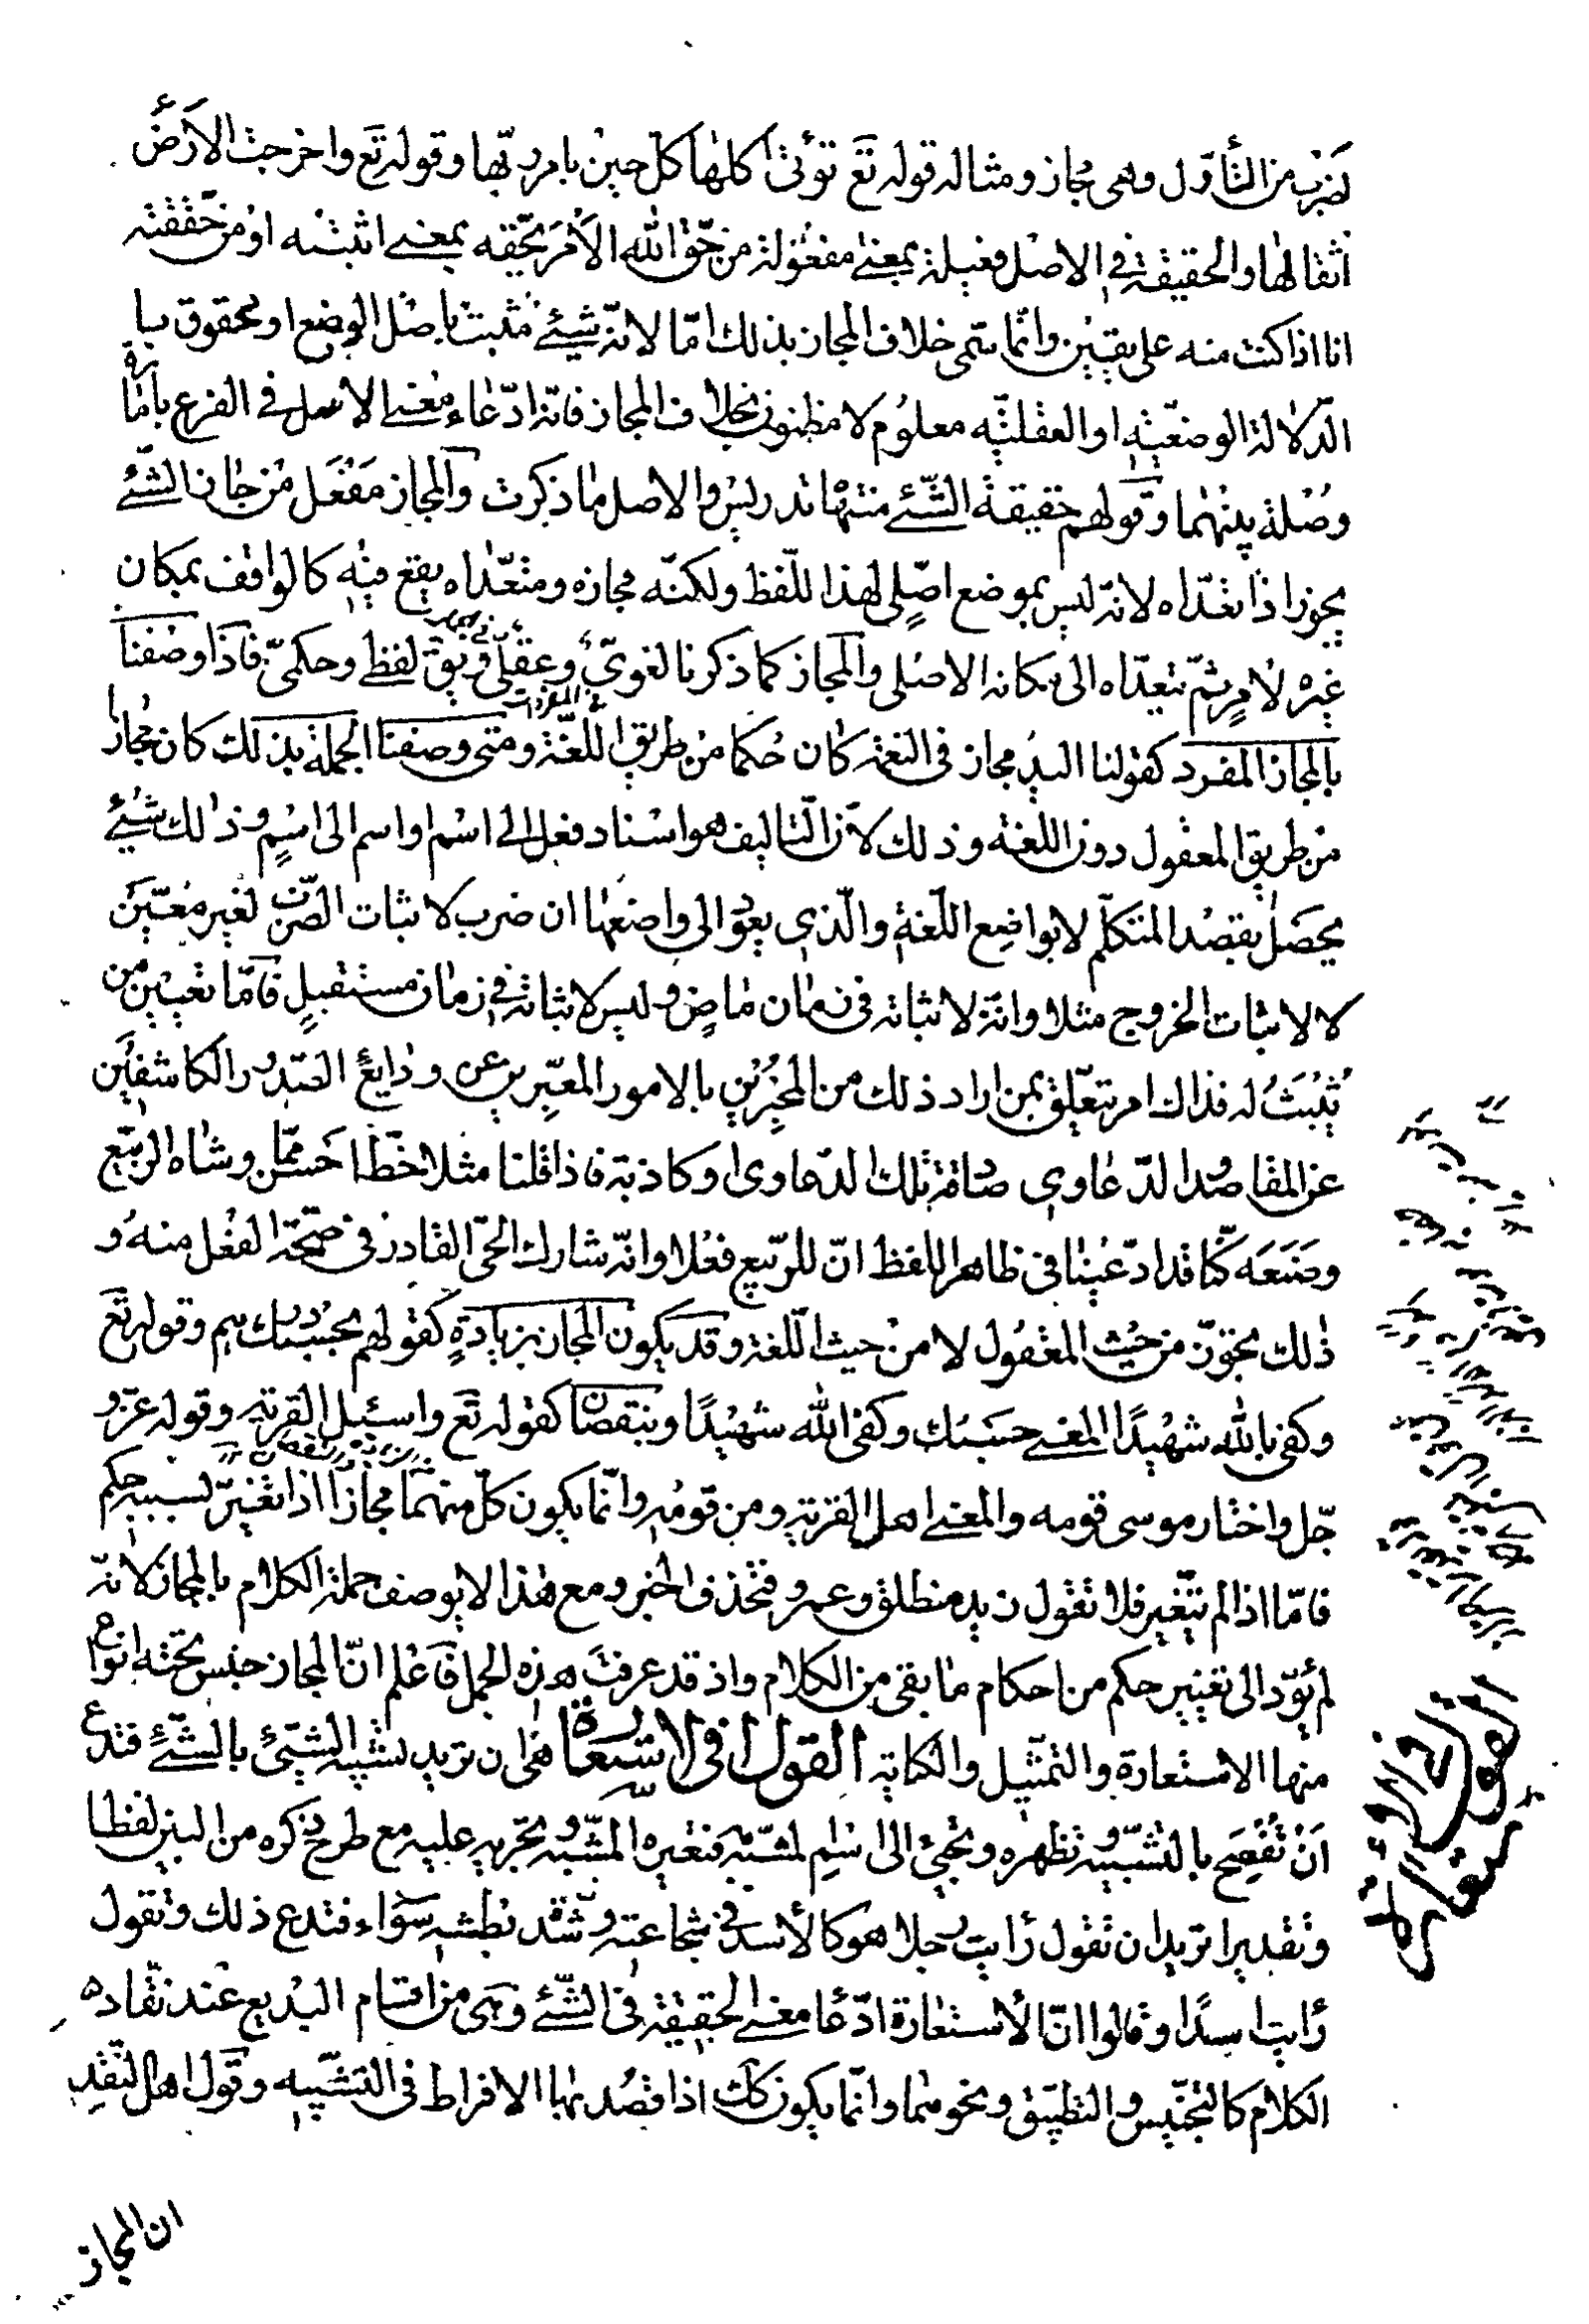 لضرب من التأوّل وهى مجاز ومثاله قوله تع تؤتى اكلها كل حين بامر ربّها وقوله تع واخرجت الارض
اثقالها والحقيقة فى الاصل فعيلة بمعنى مفعولة من حقّ الله الأمر يحقه بمعنى اثبته او من حققته
انا اذا كنت منه على يقين وانّما سمّى خلاف المجاز بذلك امّا لانّه شيئ مثبت باصل الوضع او محقوق با
الدّلالة الوضعيّة او العقليّة معلوم لا مظنون بخلاف المجاز فانّه ادّعاء معنى الاصل فى الفرع بامارة
وصلة بينهما وقولهم حقيقة الشّئ منتهاه تدريس والاصل ما ذكرت والمجاز مفعل من جاز الشّئ
يجوز اذا تعدّاه لانّه ليس بموضع اصلى لهذا اللّفظ ولكنّه مجازه ومتعدّاه يقع فيه كالواقف بمكان
غيره لامرٍ ثمّ يتعدّاه الى مكانه الاصلى والمجاز كما ذكرنا لغوىّ وعقلىّ ويق لفظى وحكمىّ فاذا وصفنا
بالمجاز المفرد كقولنا اليد مجاز فى النعمة كان حكما من طريق اللّغة ومتى وصفنا الجملة بذلك كان مجازا
من طريق المعقول دون اللغة وذلك لأن التأليف هو اسناد فعل الى اسم او اسم الى اسمٍ وذلك شيئ
يحصل بقصد المتكلّم لا بواضع اللّغة والّذى يعود الى واضعها ان ضرب لاثبات الضرب لغير معيّن
لا لاثبات الخروج مثلا وانّه لاثباته فى زمان ماضٍ وليس لاثباته فى زمان مستقبلٍ فامّا تعيين من
يُثبَتُ له فذاك امر يتعلّق بمن اراد ذلك من المخبرين بالامور المعبّرين عن ودايع الصّدور الكاشفين
عن المقاصد والدّعاوى صادقة تلك الدّعاوى او كاذبة فاذا قلنا مثلا خطّ احسن ممّا وشاه الربيع
وصنعه كنّا قد ادّعينا فى ظاهر اللفظ انّ للرّبيع فعلا وانّه شارك الحىّ القادر فى صحّة الفعل منه و
ذلك تجوّز من حيث المعقول لا من حيث اللّغة وقد يكون المجاز بزيادةٍ كقولهم بحسبك درهم وقوله تع
وكفى بالله شهيدًا المعنى حسبك وكفى الله شهيدًا وبنقصان كقوله تع واسئيل القرية وقوله عزّ و
جّل واختار موسى قومه والمعنى اهل القرية ومن قومه وانّما يكون كلّ منهما مجازا اذا تغيّر بسببه حكم
فامّا اذا لم يتغيّر فلا تقول زيد منطلق وعمرو فتحذف الخبر ومع هذا لا يوصف جملة الكلام بالمجاز لانّه
لم يؤدّ الى تغيير حكم من احكام ما بقى من الكلام واذ قد عرفت هذه الجمل فاعلم انّ المجاز جنس تحته انواع
منها الاستعارة والتمثيل والكناية القول فى الاستعارة هى ان تريد تشبيه الشّئ بالشّئ فتدع
ان تفصح بالتشبيه وتظهره وتجئ الى اسم المشبّه به فتعيره المشبّه وتجريه عليه مع طرح ذكره من البين لفظا
وتقديرا تريد ان تقول رأيت رجلا هو كالأسد فى شجاعته وشدّة بطشه سواء فتدع ذلك وتقول
رأيت اسدًا وقالوا انّ الاستعارة ادّعا معنى الحقيقة فى الشّئ وهى من اقسام البديع عند نقّاد
الكلام كالتجنيس والتطبيق ونحوهما وانّما يكون كك اذا قصد بها الافراط فى التشبيه وقول اهل النّقد
القول فى الاستعارة
ان المجاز